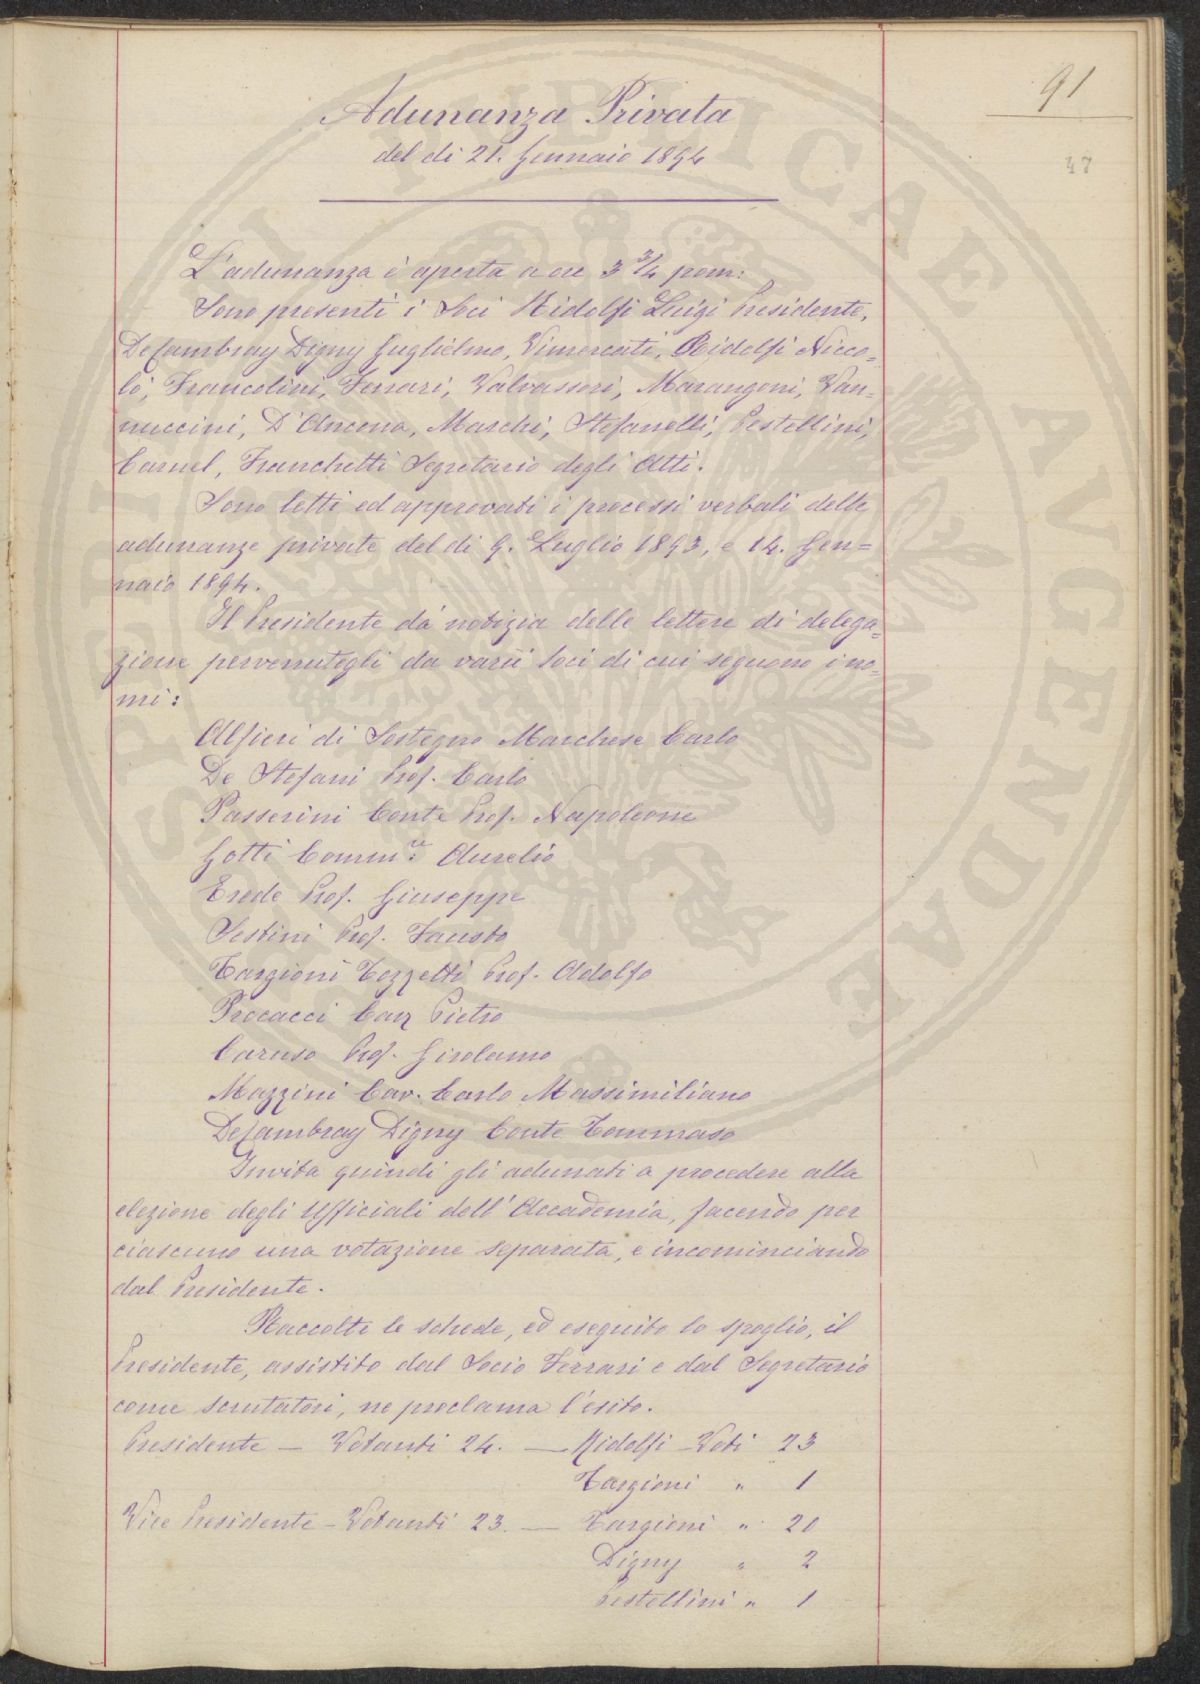 91
47
Adunanza Privata
del di 21. Gennaio 1894
L'adunanza è aperta a ore 3 3/4 pom:
Sono presenti i Soci Ridolfi Luigi Presidente,
De Cambray Digny Guglielmo, Vimercati, Ridolfi Nicco=
lò, Francolini, Ferrari, Valvassori, Marangoni, Van=
nuccini, D'Ancona, Marchi, Stefanelli, Pestellini,
Carnel, Franchetti Segretario degli Atti.
Sono letti ed approvati i processi verbali delle
adunanze private del di 9. Luglio 1893, e 14. Gen=
naio 1894.
Il Presidente dà notizia delle lettere di delega=
zione pervenutegli da varii Soci di cui seguono i no=
mi:
Alfieri di Sostegno Marchese Carlo
De Stefani Prof. Carlo
Passerini Conte Prof. Napoleone
Gotti Comm.re Aurelio
Erede Prof. Giuseppe
Sestini Prof. Fausto
Targioni Tozzetti Prof. Adolfo
Procacci Cav Pietro
Caruso Prof. Girolamo
Mazzini Cav. Carlo Massimiliano
De Cambray Digny Conte Tommaso
Invita quindi gli adunati a procedere alla
elezione degli Ufficiali dell'Accademia, facendo per
ciascuno una votazione separata, e incominciando
dal Presidente.
Raccolte le schede, ed eseguito lo spoglio, il
Presidente, assistito dal Socio Ferrari e dal Segretario
come scrutatori, ne proclama l'esito.
Presidente — Votanti 24. — Ridolfi — Voti 23
Targioni " 1
Vice Presidente — Votanti 23. — Targioni " 20
Digny " 2
Pestellini " 1
PROSPERITATI PUBLICAE AVGENDAE